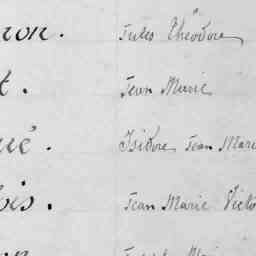 ron. Jules Théodore
t. Jean Marie
ué. Isidore Jean Mari
ois. Jean Marie Victo